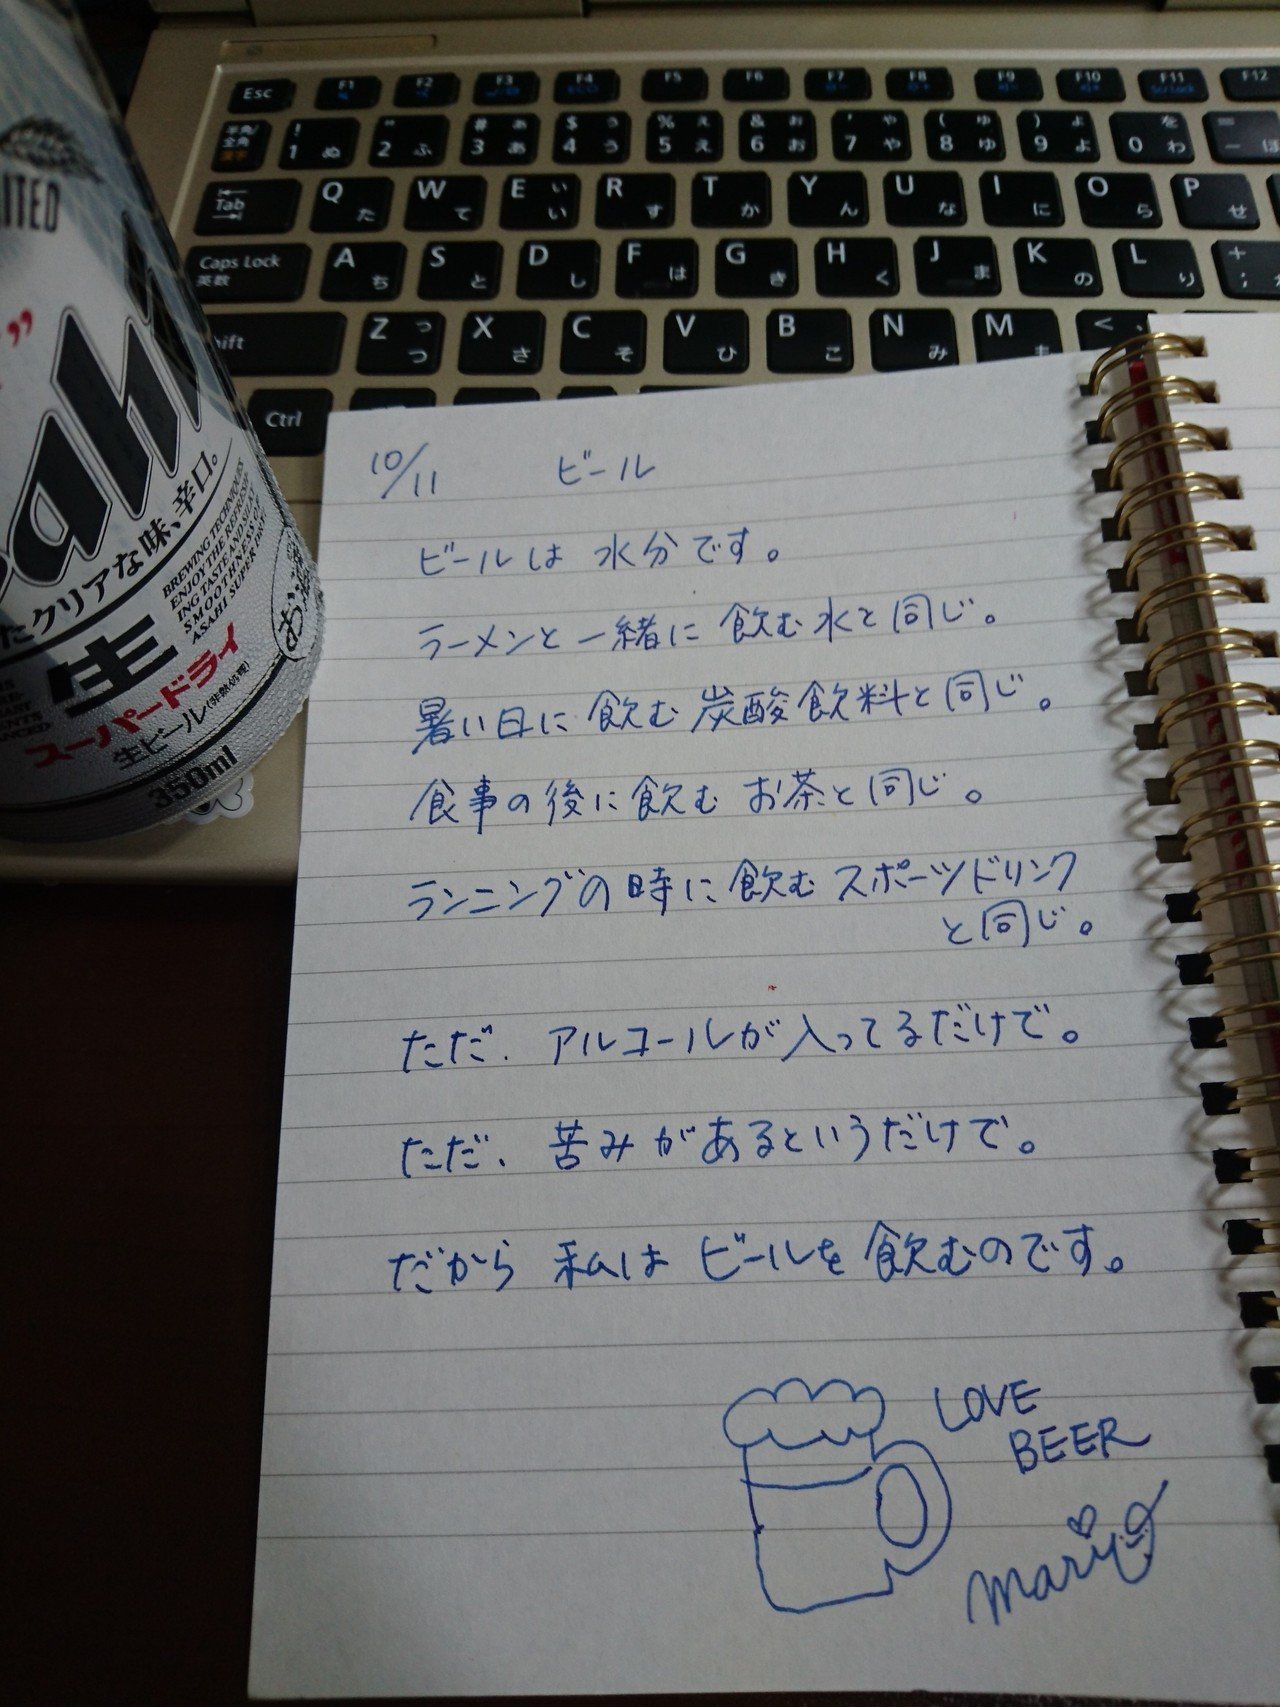 Esc
F1
F2
F3
F4
F5
F6
F7
F8
F9
F10
F11
F12
半角/
全角
漢字
! 1 ぬ
" 2 ふ
# 3 ぁ あ
$ 4 ぅ う
% 5 ぇ え
& 6 ぉ お
' 7 ゃ や
( 8 ゅ ゆ
) 9 ょ よ
0 を わ
= - ほ
Tab
Q た
W て
E ぃ い
R す
T か
Y ん
U な
I に
O ら
P せ
Caps Lock
英数
A ち
S と
D し
F は
G き
H く
J ま
K の
L り
+ ;
Z っ つ
X さ
C そ
V ひ
B こ
N み
M も
< 、
Ctrl
たクリアな味、辛口。
BREWING TECHNIQUES
ENJOY THE REFRESH-
ING TASTE AND SILKY
SMOOTHNESS OF
ASAHI SUPER DRY
生
スーパードライ
生ビール(非熱処理)
350ml
10/11 ビール
ビールは 水分です。
ラーメンと一緒に飲む水と同じ。
暑い日に飲む炭酸飲料と同じ。
食事の後に飲むお茶と同じ。
ランニングの時に飲むスポーツドリンク
と同じ。
ただ、アルコールが入ってるだけで。
ただ、苦みがあるというだけで。
だから 私は ビールを飲むのです。
LOVE
BEER